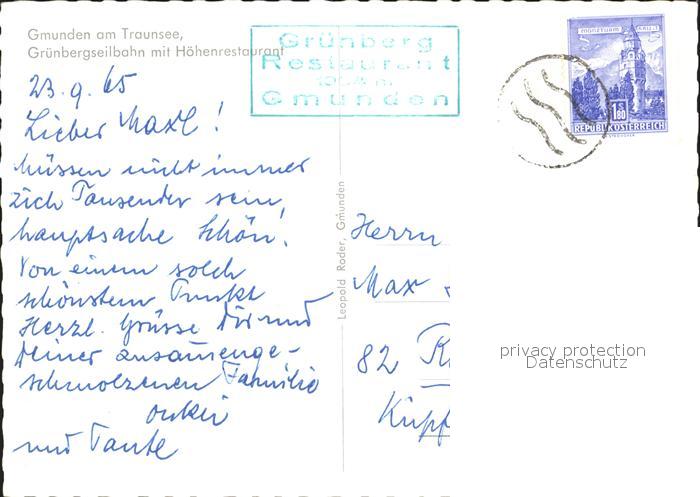 Gmunden am Traunsee,
Grünbergseilbahn mit Höhenrestaurant
Grünberg
Restaurant
1004 m
Gmunden
MÜNZTURM HALL i. T.
S
1.80
REPUBLIK ÖSTERREICH
23.9.65
Lieber Maxl!
Müssen nicht immer
zich Tausender sein,
hauptsache schön!
Von einem solch
schönstem Punkt
Herzl. Grüsse Dir und
Deiner zusammenge-
schmolzenen Familie
onkel
und Tante
Leopold Roder, Gmunden
Herrn
Max
82 R
Kupf
privacy protection
Datenschutz